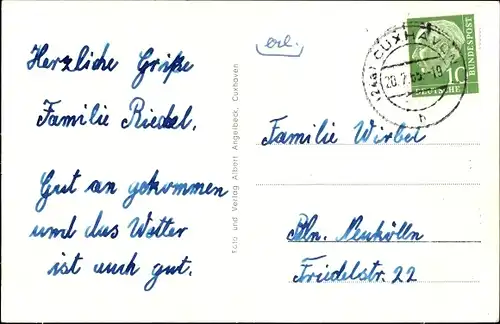 Herzliche Grüße
Familie Riedel.
Gut an gekommen
und das Wetter
ist auch gut.
Foto und Verlag Albert Angelbeck, Cuxhaven
erl.
CUXHAVEN
10
DEUTSCHE
BUNDESPOST
Familie Wirbel
Bln. Neukölln
Friedelstr. 22